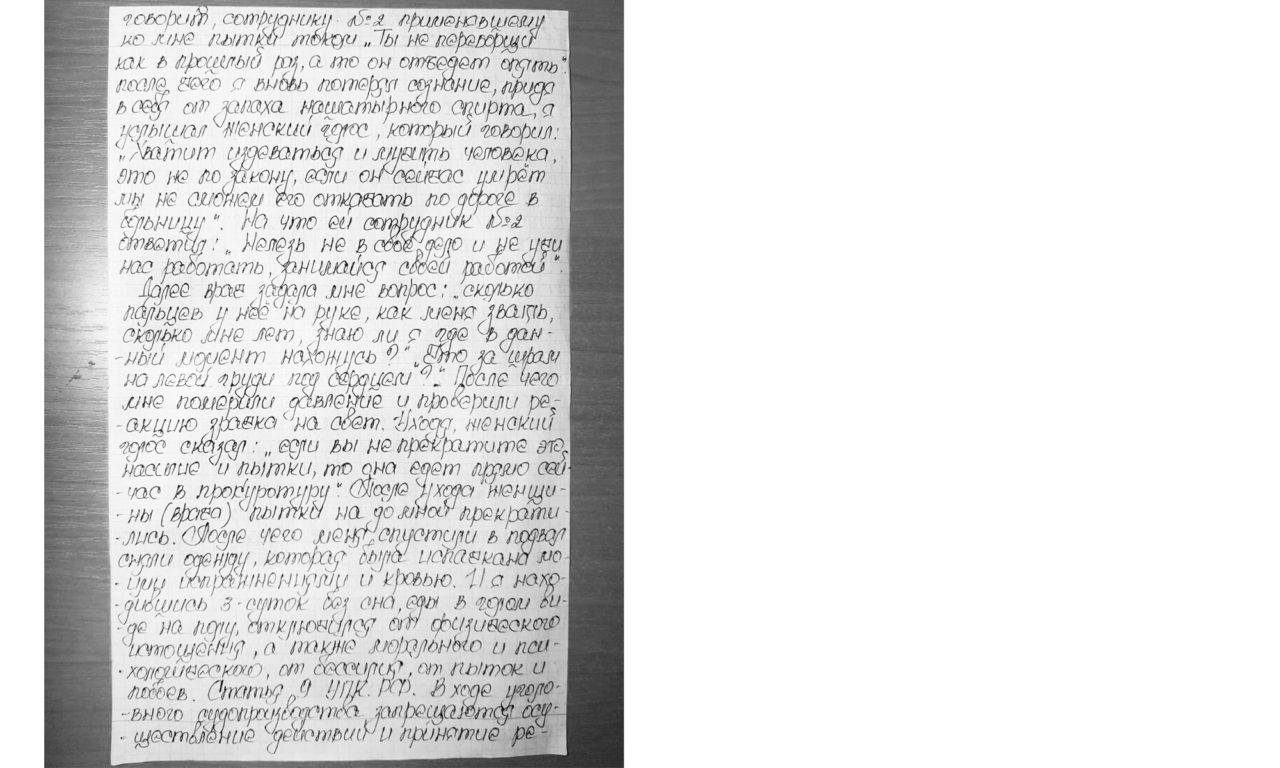 говорит, сотруднику №2 применявшему
ко мне пытки током „Ты не переворщи
как в прошлый раз, а то он отъедет опять“.
после, чего я вновь потерял сознание, придя
в себя от запаха нашатырного спирта, я
услышал женский голос, который говорил:
„Хватит издеваться и мучить человека,
это не по закону, если он сейчас умрёт
мы не сможем его откачать по дороге в
больницу“. На что ей сотрудник №2
ответил: „Нелезь не в своё дело и не учи
нас работать, занимайся своей работой“.
Далее врач задала мне вопрос: „сколько
пальцев у неё на руке, как меня звать,
сколько мне лет, знаю ли я где в дан-
-ный момент нахожусь?“ „Что за шрам
на левой груди под сердцем?“ После чего
мне померили давление и проверили ре-
-акцию зрачка на свет. Уходя, женский
голос сказал: если вы не прекратите это
насилие и пытки, то она едет прямо сей-
-час в прокуратуру“. После ухода женщи-
-ны (врача) пытки на до мной прекрати-
-лись. После чего меня спустили в подвал
сняли одежду, которая была испачкана мо-
-ими испражнениями и кровью. И я нахо-
-дившись 3-суток без сна, еды в голом ви-
-де на полу, отключился от физического
истощения, а также морального и пси-
-хологического, от бессилия, от пыток и
побоев. Статья 9 УПК РФ. В ходе уголо-
-вного судопроизводства запрещаются осу-
-ществление действий и принятие ре-